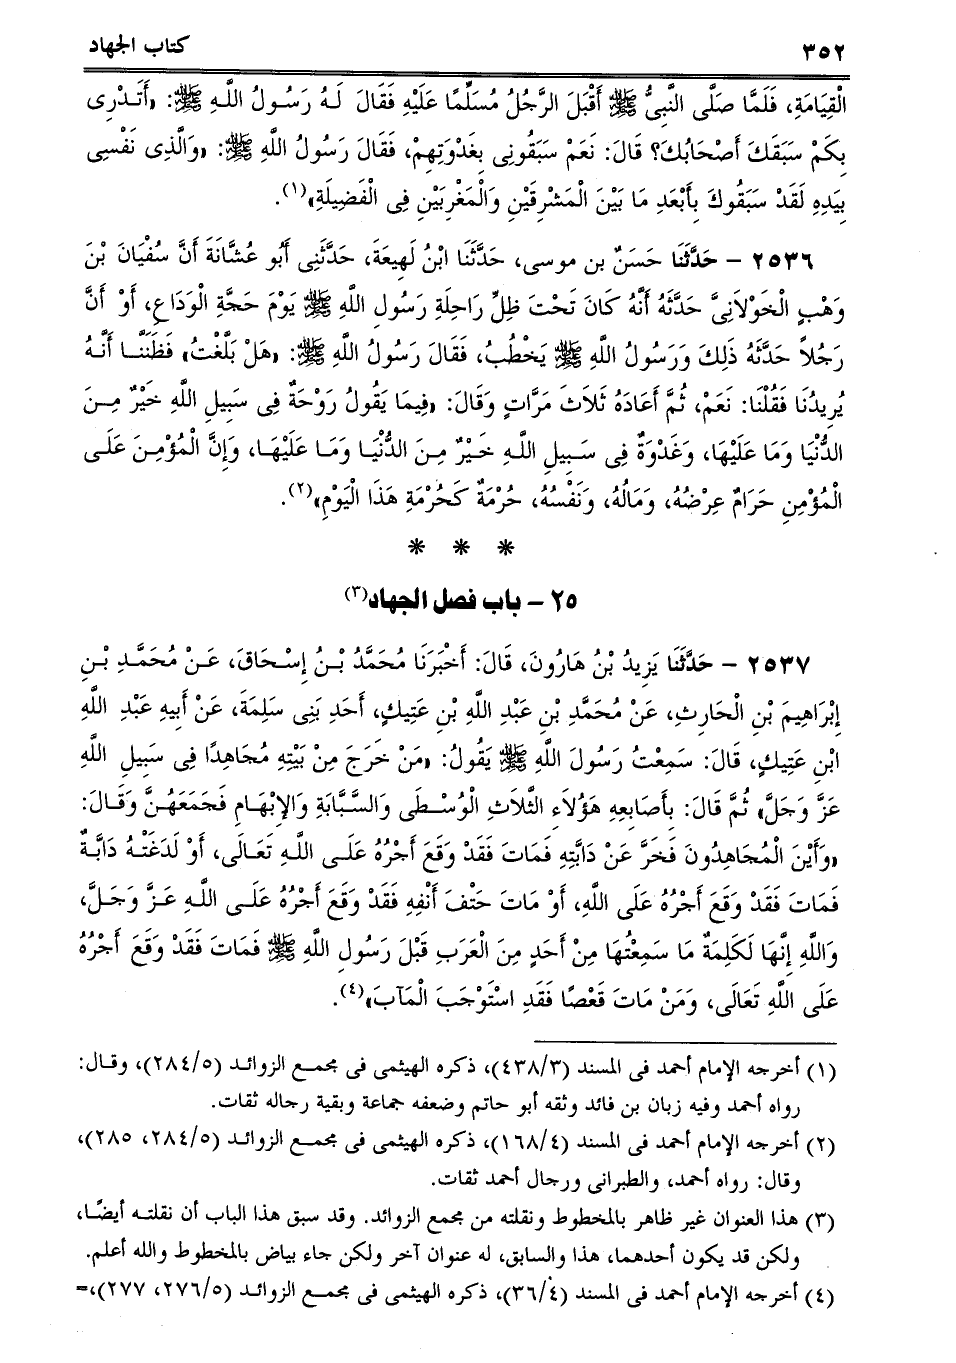 ٣٥٢
كتاب الجهاد
الْقِيَامَةِ، فَلَمَّا صَلَّى النَّبِىُّ ﷺ أَقْبَلَ الرَّجُلُ مُسَلِّمًا عَلَيْهِ فَقَالَ لَهُ رَسُولُ اللَّهِ ﷺ: «أَتَدْرِى
بِكَمْ سَبَقَكَ أَصْحَابُكَ؟ قَالَ: نَعَمْ سَبَقُونِى بِغَدْوَتِهِمْ، فَقَالَ رَسُولُ اللَّهِ ﷺ: «وَالَّذِى نَفْسِى
بِيَدِهِ لَقَدْ سَبَقُوكَ بِأَبْعَدِ مَا بَيْنَ الْمَشْرِقَيْنِ وَالْمَغْرِبَيْنِ فِى الْفَضِيلَةِ»(١).
٢٥٣٦ – حَدَّثَنَا حَسَنٌ بن موسى، حَدَّثَنَا ابْنُ لَهِيعَةَ، حَدَّثَنِى أَبُو عُشَّانَةَ أَنَّ سُفْيَانَ بْنَ
وَهْبٍ الْخَوْلَانِىَّ حَدَّثَهُ أَنَّهُ كَانَ تَحْتَ ظِلِّ رَاحِلَةِ رَسُولِ اللَّهِ ﷺ يَوْمَ حَجَّةِ الْوَدَاعِ، أَوْ أَنَّ
رَجُلاً حَدَّثَهُ ذَلِكَ وَرَسُولُ اللَّهِ ﷺ يَخْطُبُ، فَقَالَ رَسُولُ اللَّهِ ﷺ: «هَلْ بَلَّغْتُ» فَظَنَنَّا أَنَّهُ
يُرِيدُنَا فَقُلْنَا: نَعَمْ، ثُمَّ أَعَادَهُ ثَلَاثَ مَرَّاتٍ وَقَالَ: «فِيمَا يَقُولُ رَوْحَةٌ فِى سَبِيلِ اللَّهِ خَيْرٌ مِنَ
الدُّنْيَا وَمَا عَلَيْهَا، وَغَدْوَةٌ فِى سَبِيلِ اللَّهِ خَيْرٌ مِنَ الدُّنْيَا وَمَا عَلَيْهَا، وَإِنَّ الْمُؤْمِنَ عَلَى
الْمُؤْمِنِ حَرَامٌ عِرْضُهُ، وَمَالُهُ، وَنَفْسُهُ، حُرْمَةٌ كَحُرْمَةِ هَذَا الْيَوْمِ»(٢).
* * *
٢٥ – باب فصل الجهاد(٣)
٢٥٣٧ – حَدَّثَنَا يَزِيدُ بْنُ هَارُونَ، قَالَ: أَخْبَرَنَا مُحَمَّدُ بْنُ إِسْحَاقَ، عَنْ مُحَمَّدِ بْنِ
إِبْرَاهِيمَ بْنِ الْحَارِثِ، عَنْ مُحَمَّدِ بْنِ عَبْدِ اللَّهِ بْنِ عَتِيكٍ، أَحَدِ بَنِى سَلِمَةَ، عَنْ أَبِيهِ عَبْدِ اللَّهِ
ابْنِ عَتِيكٍ، قَالَ: سَمِعْتُ رَسُولَ اللَّهِ ﷺ يَقُولُ: «مَنْ خَرَجَ مِنْ بَيْتِهِ مُجَاهِدًا فِى سَبِيلِ اللَّهِ
عَزَّ وَجَلَّ» ثُمَّ قَالَ: بِأَصَابِعِهِ هَؤُلَاءِ الثَّلَاثِ الْوُسْطَى وَالسَّبَّابَةِ وَالإِبْهَامِ فَجَمَعَهُنَّ وَقَالَ:
«وَأَيْنَ الْمُجَاهِدُونَ فَخَرَّ عَنْ دَابَّتِهِ فَمَاتَ فَقَدْ وَقَعَ أَجْرُهُ عَلَى اللَّهِ تَعَالَى، أَوْ لَدَغَتْهُ دَابَّةٌ
فَمَاتَ فَقَدْ وَقَعَ أَجْرُهُ عَلَى اللَّهِ، أَوْ مَاتَ حَتْفَ أَنْفِهِ فَقَدْ وَقَعَ أَجْرُهُ عَلَى اللَّهِ عَزَّ وَجَلَّ،
وَاللَّهِ إِنَّهَا لَكَلِمَةٌ مَا سَمِعْتُهَا مِنْ أَحَدٍ مِنَ الْعَرَبِ قَبْلَ رَسُولِ اللَّهِ ﷺ فَمَاتَ فَقَدْ وَقَعَ أَجْرُهُ
عَلَى اللَّهِ تَعَالَى، وَمَنْ مَاتَ قَعْصًا فَقَدِ اسْتَوْجَبَ الْمَآبَ»(٤).
(١) أخرجه الإمام أحمد فى المسند (٤٣٨/٣)، ذكره الهيثمى فى مجمع الزوائد (٢٨٤/٥)، وقال:
رواه أحمد وفيه زبان بن فائد وثقه أبو حاتم وضعفه جماعة وبقية رجاله ثقات.
(٢) أخرجه الإمام أحمد فى المسند (١٦٨/٤)، ذكره الهيثمى فى مجمع الزوائد (٢٨٤/٥، ٢٨٥)،
وقال: رواه أحمد، والطبرانى ورجال أحمد ثقات.
(٣) هذا العنوان غير ظاهر بالمخطوط ونقلته من مجمع الزوائد. وقد سبق هذا الباب أن نقلته أيضًا،
ولكن قد يكون أحدهما، هذا والسابق، له عنوان آخر ولكن جاء بياض بالمخطوط والله أعلم.
(٤) أخرجه الإمام أحمد فى المسند (٣٦/٤)، ذكره الهيثمى فى مجمع الزوائد (٢٧٦/٥، ٢٧٧)،=